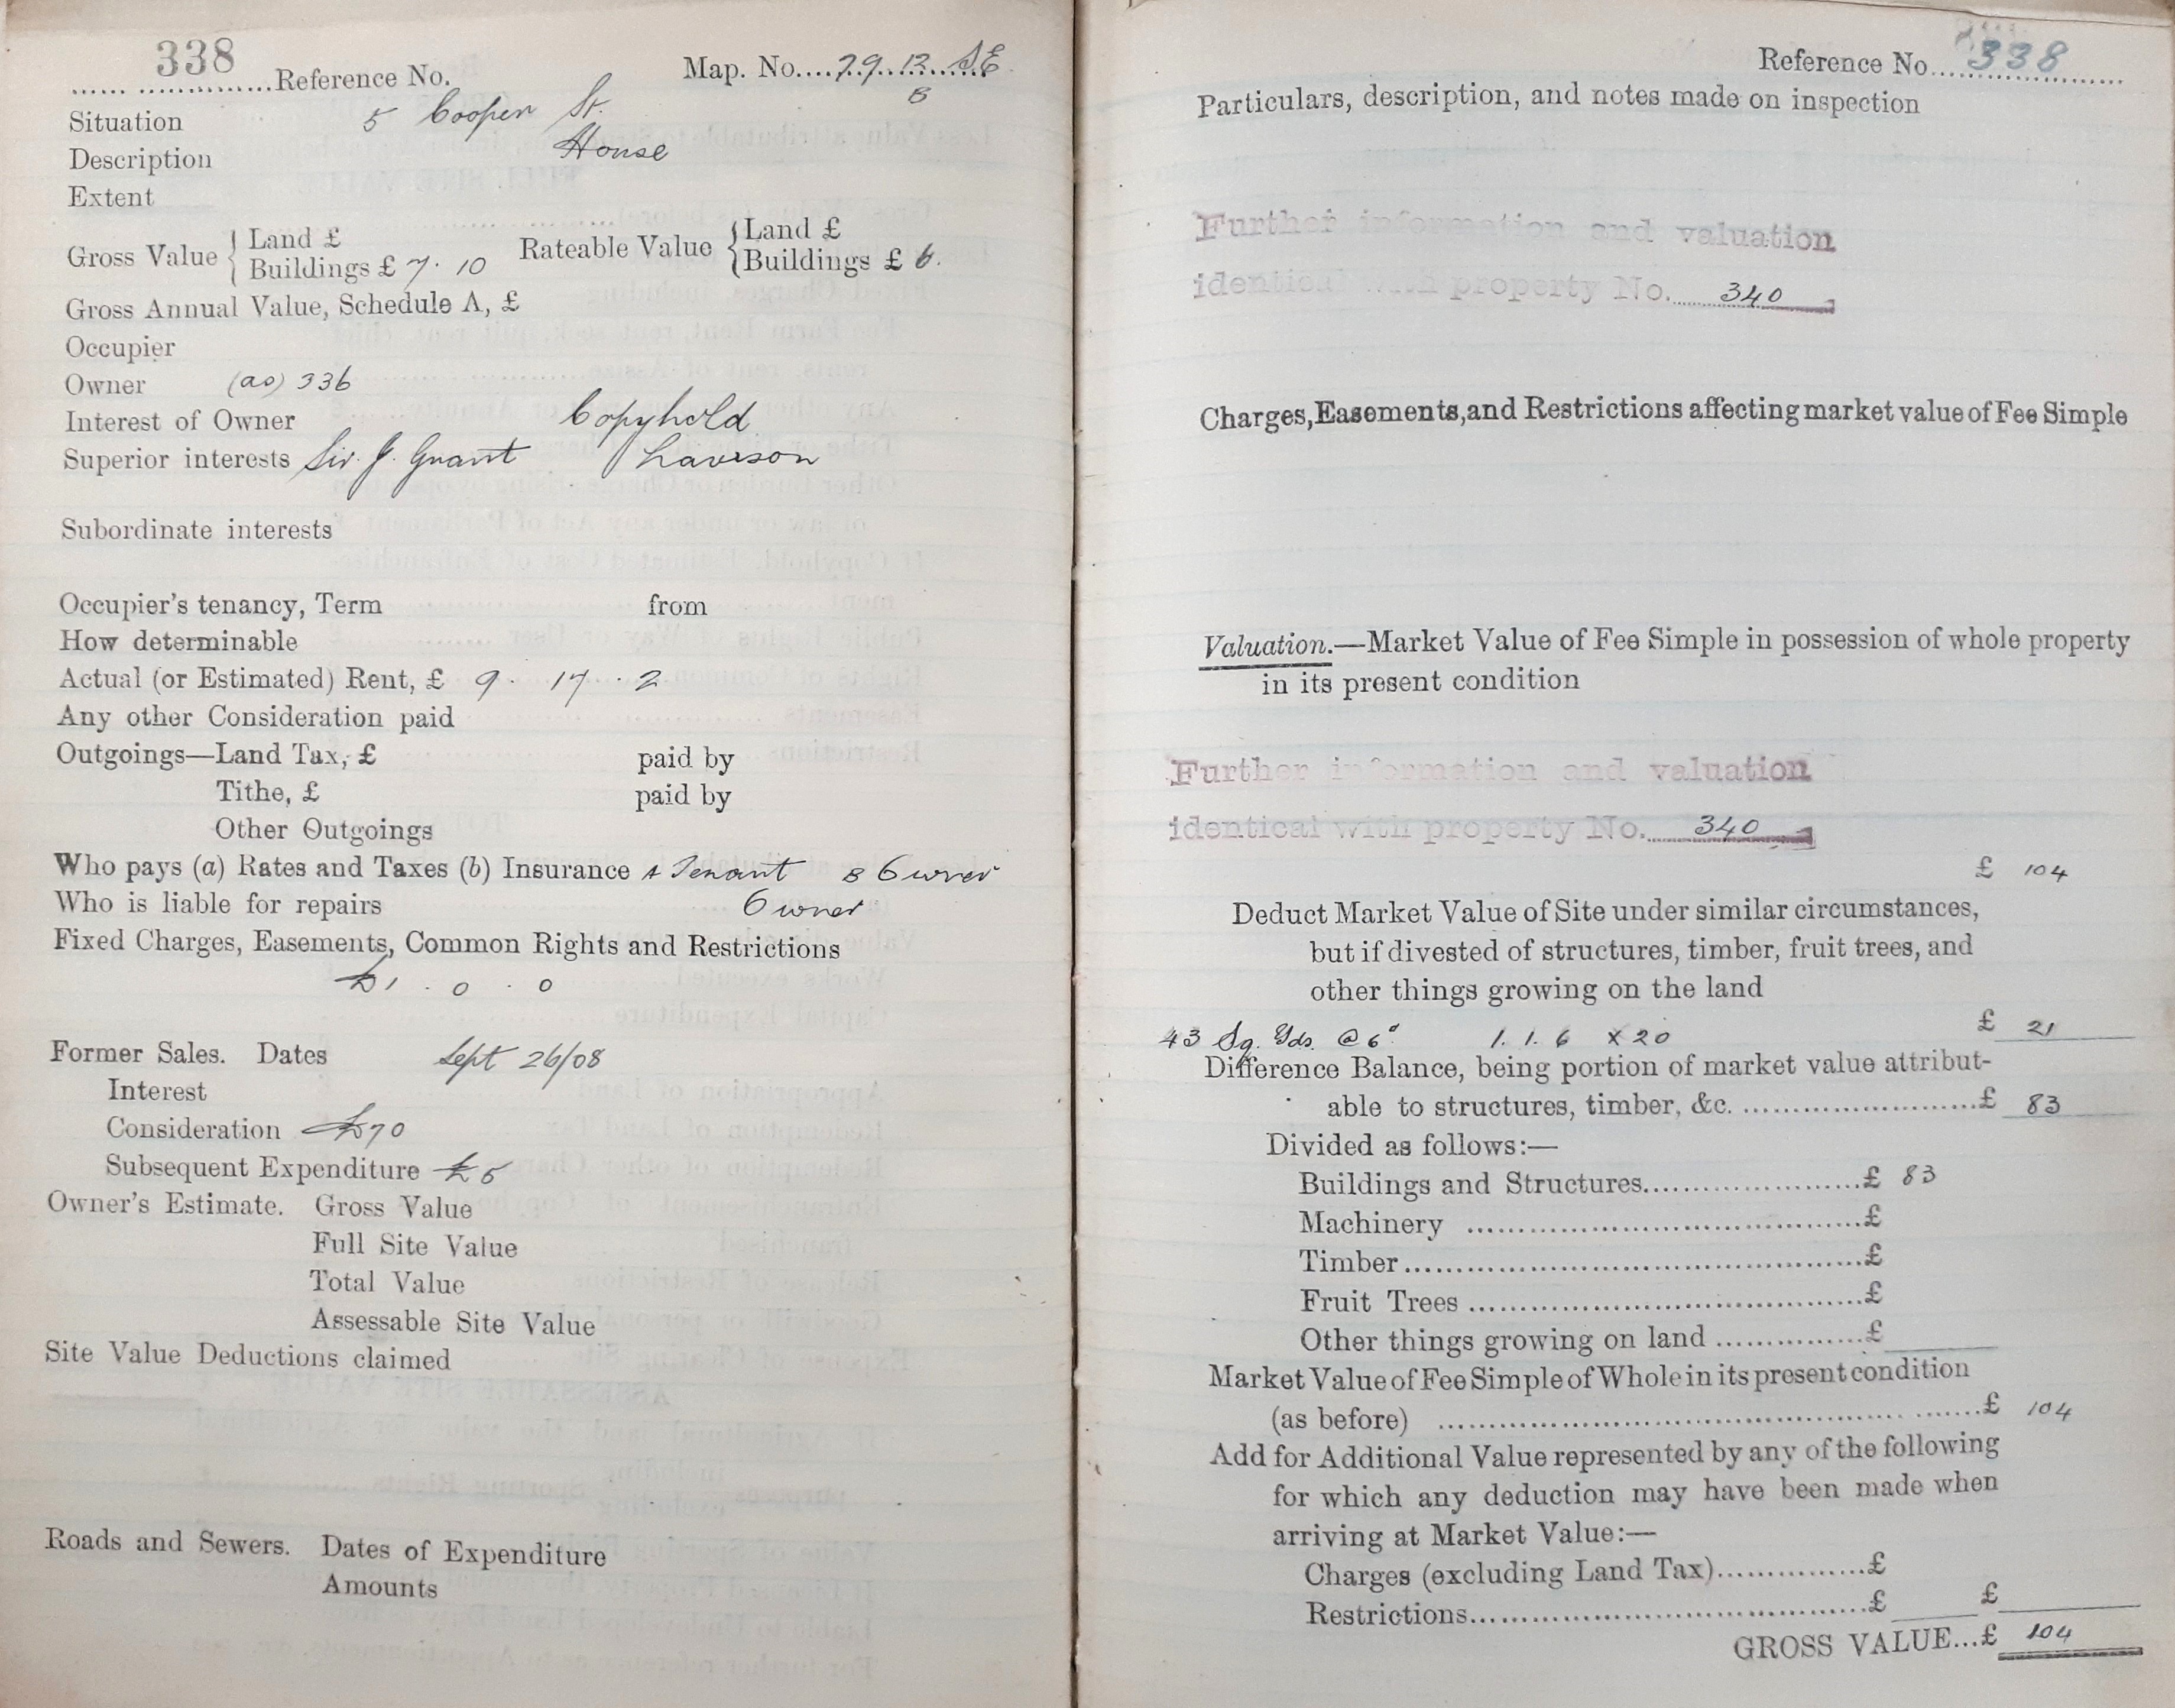 338
Reference No. Map. No. 79.12 S.E
B
Situation 5 Cooper St.
Description House
Extent
Gross Value { Land £ Rateable Value { Land £
Buildings £ 7. 10 Buildings £ 6.
Gross Annual Value, Schedule A, £
Occupier
Owner (as) 336
Interest of Owner Copyhold
Superior interests Sir. J. Grant Lawson
Subordinate interests
Occupier's tenancy, Term from
How determinable
Actual (or Estimated) Rent, £ 9. 17. 2
Any other Consideration paid
Outgoings—Land Tax, £ paid by
Tithe, £ paid by
Other Outgoings
Who pays (a) Rates and Taxes (b) Insurance A Tenant B Owner
Who is liable for repairs Owner
Fixed Charges, Easements, Common Rights and Restrictions
£1 . 0 . 0
Former Sales. Dates Sept 26/08
Interest
Consideration £70
Subsequent Expenditure £5
Owner's Estimate. Gross Value
Full Site Value
Total Value
Assessable Site Value
Site Value Deductions claimed
Roads and Sewers. Dates of Expenditure
Amounts
Reference No. 338
Particulars, description, and notes made on inspection
Further information and valuation
identical with property No. 340
Charges, Easements, and Restrictions affecting market value of Fee Simple
Valuation.—Market Value of Fee Simple in possession of whole property
in its present condition
Further information and valuation
identical with property No. 340
£ 104
Deduct Market Value of Site under similar circumstances,
but if divested of structures, timber, fruit trees, and
other things growing on the land
43 Sq. Yds. @ 6d 1. 1. 6 x 20 £ 21
Difference Balance, being portion of market value attribut-
able to structures, timber, &c. £ 83
Divided as follows:—
Buildings and Structures £ 83
Machinery £
Timber £
Fruit Trees £
Other things growing on land £
Market Value of Fee Simple of Whole in its present condition
(as before) £ 104
Add for Additional Value represented by any of the following
for which any deduction may have been made when
arriving at Market Value:—
Charges (excluding Land Tax) £
Restrictions £ £
GROSS VALUE...£ 104